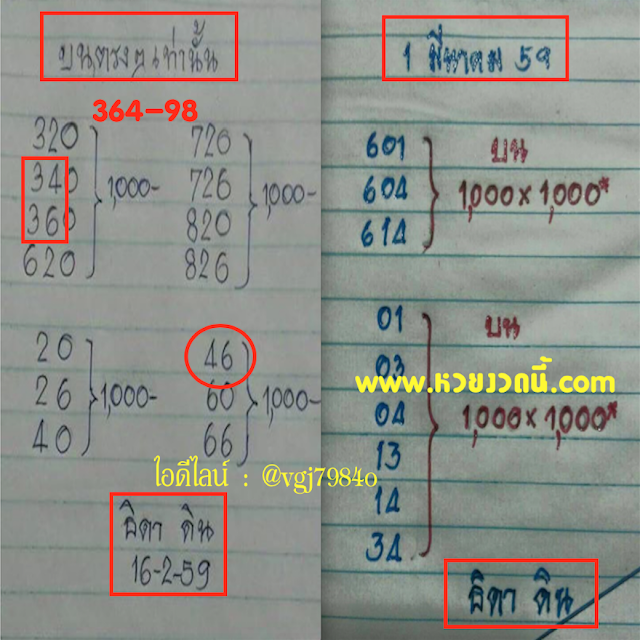 บนตรงๆเท่านั้น
364-98
320 720
340 726
360 820
620 826
1,000- 1,000-
20 46
26 60
40 66
1,000- 1,000-
ไอดีไลน์ : @vgj7984o
ธิดา ดิน
16-2-59
1 มีนาคม 59
601
604
614
บน
1,000 x 1,000*
01
03
04
13
14
34
บน
www.หวยงวดนี้.com
1,000 x 1,000*
ธิดา ดิน